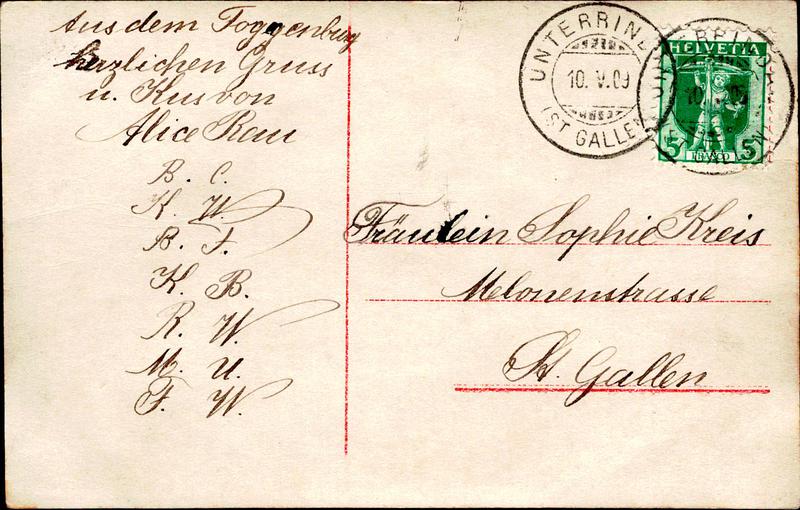 Aus dem Toggenburg
herzlichen Gruss
u. Kus von
Alice Rau
B. C.
K. W.
B. F.
K. B.
R. W.
M. U.
F. W.
UNTERRIND
10. V. 09
(ST GALLEN
HELVETIA
5 FRANCO 5
Fräulein Sophie Kreis
Melonenstrasse
St. Gallen